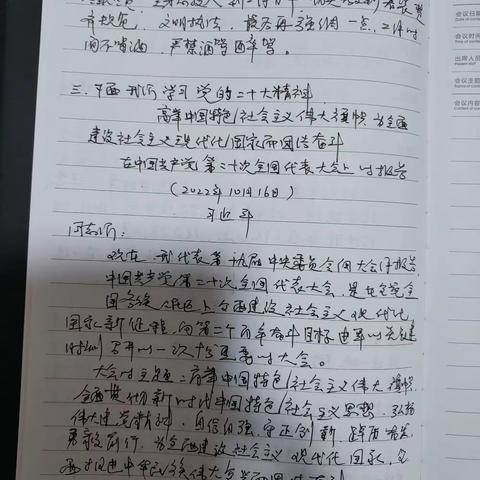 并规范，文明执法，最后再强调一点，工作时
间不喝酒，严禁酒驾醉驾。
三、平西开所学习党的二十大精神
高举中国特色社会主义伟大旗帜 为全面
建设社会主义现代化国家而团结奋斗
在中国共产党第二十次全国代表大会上的报告
(2022年10月16日)
习近平
同志们：
现在，我代表第十九届中央委员会向大会作报告。
中国共产党第二十次全国代表大会，是在全党全
国各族人民迈上全面建设社会主义现代化
国家新征程、向第二个百年奋斗目标进军的关键
时刻召开的一次十分重要的大会。
大会的主题是：高举中国特色社会主义伟大旗帜，
全面贯彻新时代中国特色社会主义思想，弘扬
伟大建党精神，自信自强、守正创新，踔厉奋发、
勇毅前行，为全面建设社会主义现代化国家、全
面推进中华民族伟大复兴而团结奋斗
会议日期
会议时间
出席人员
会议主题
会议内容